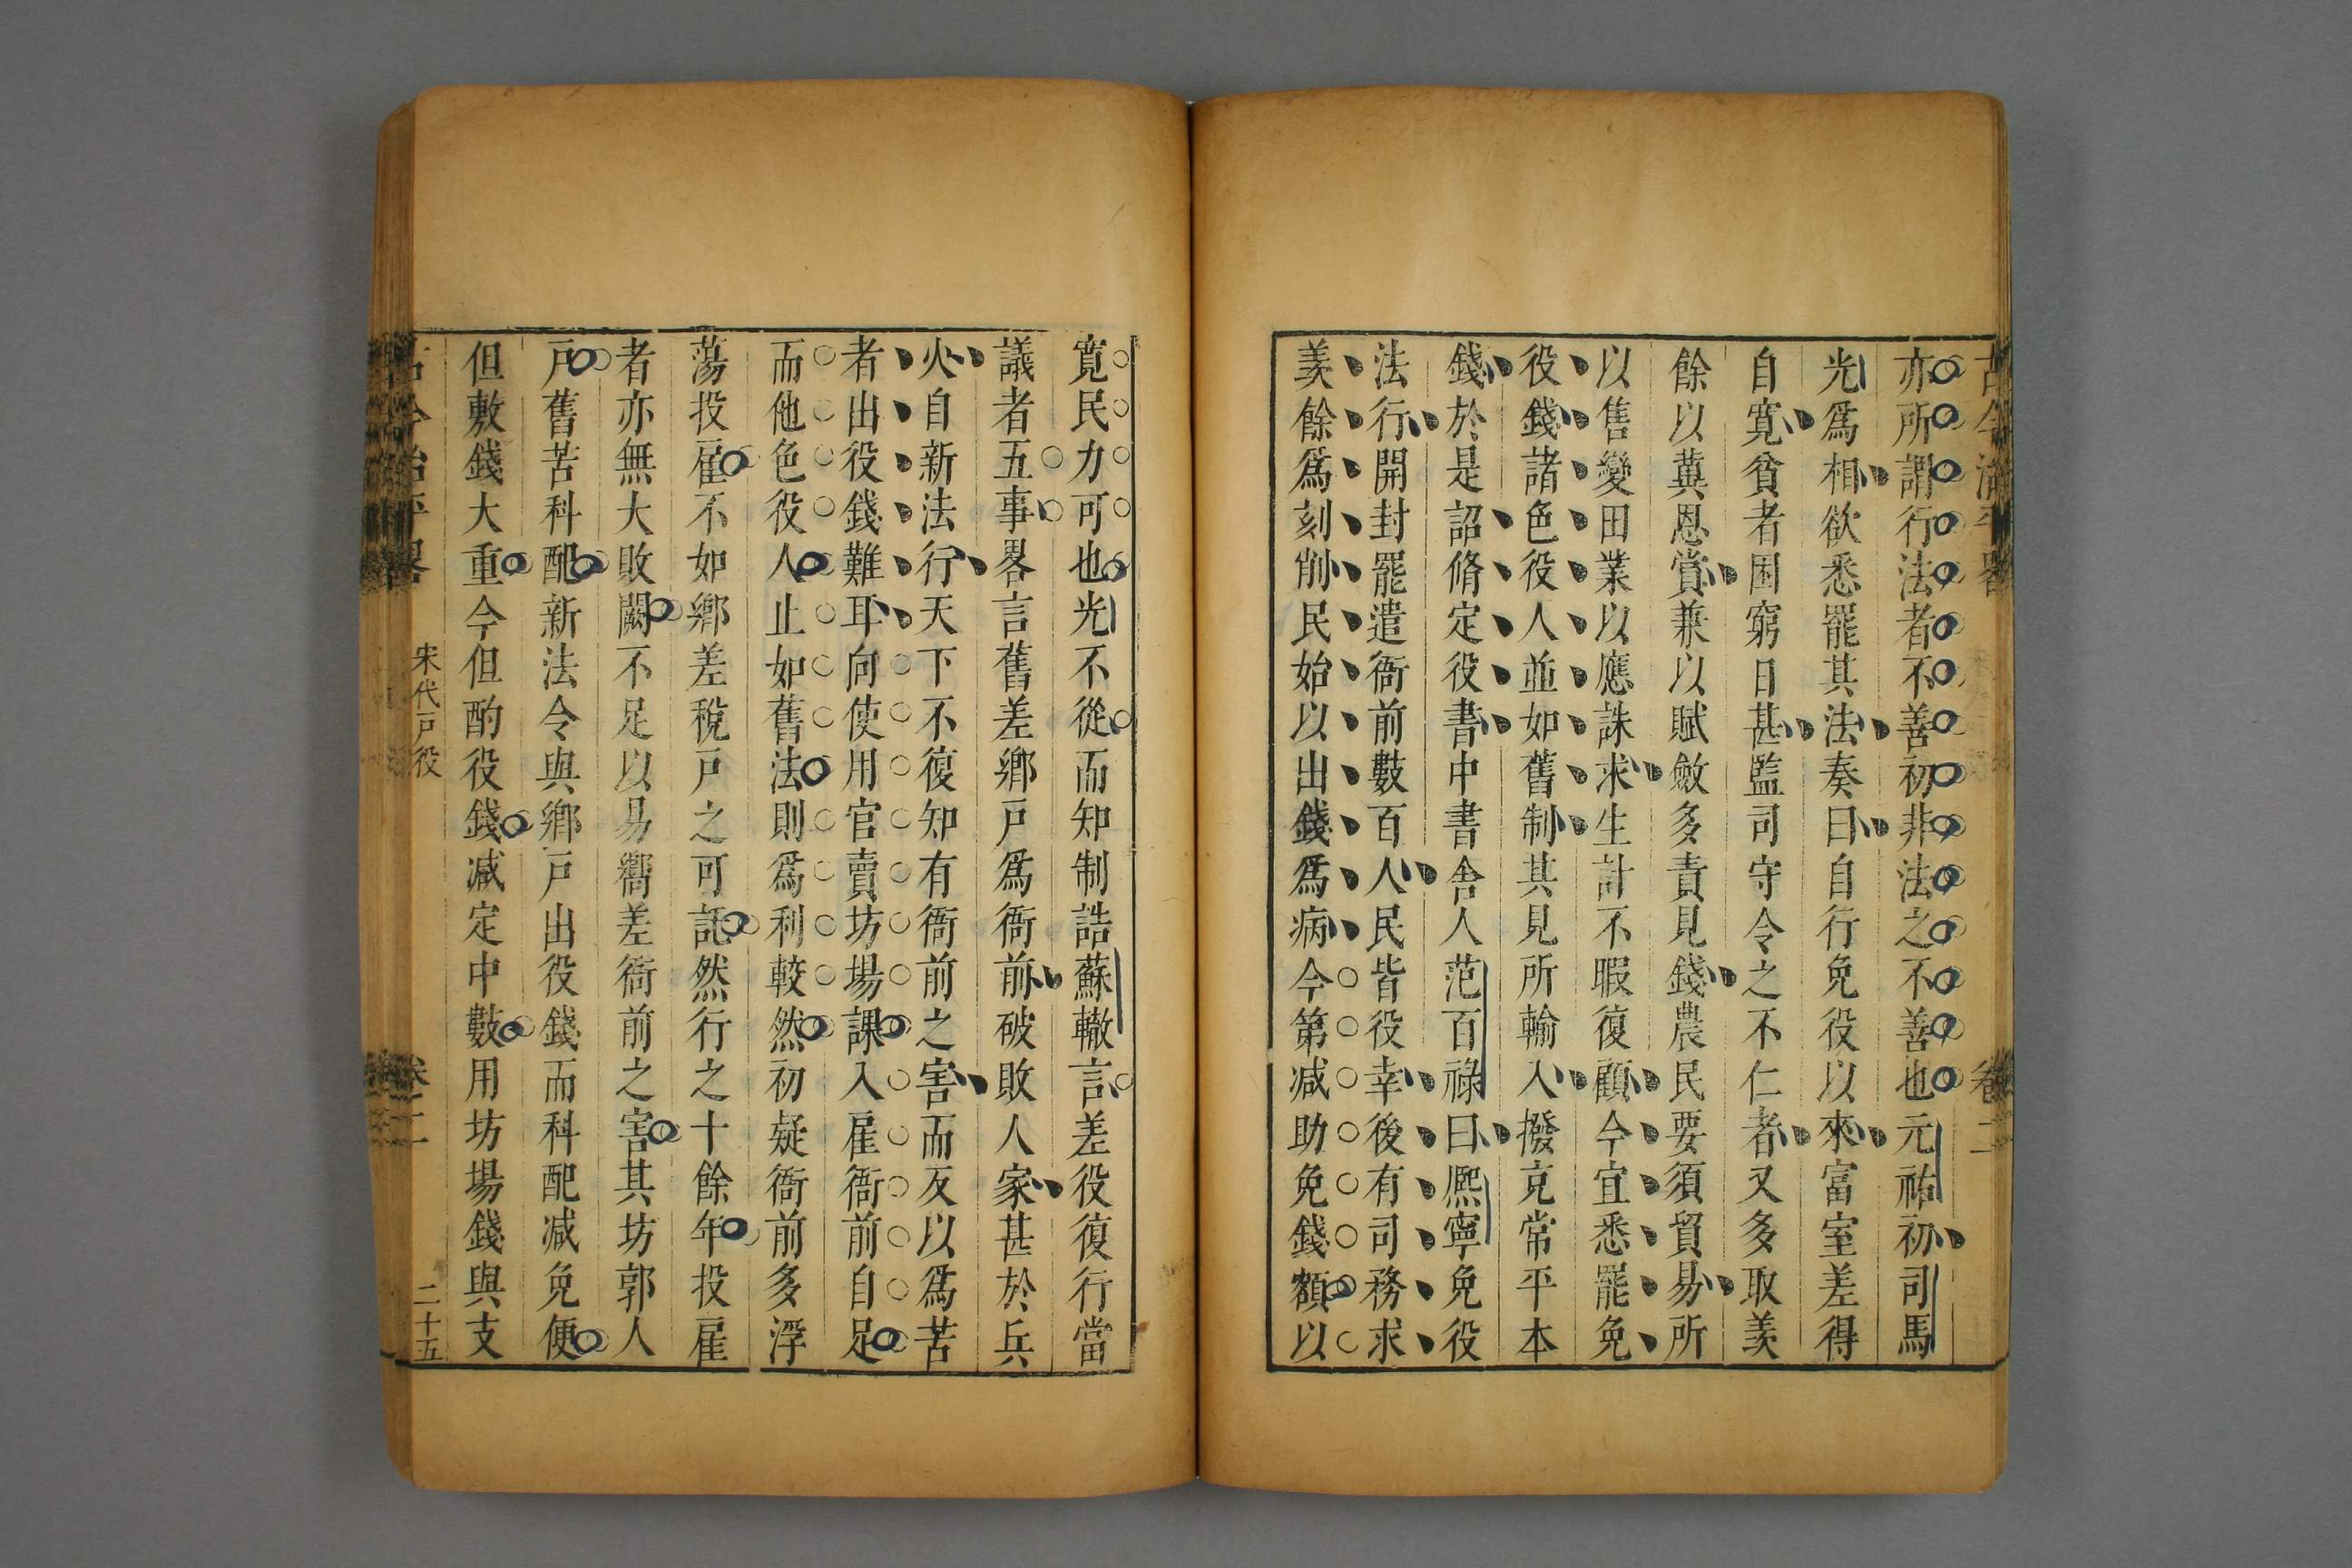 古今治平畧 卷二
亦所謂行法者不善初非法之不善也元祐初司馬
光爲相欲悉罷其法奏曰自行免役以來富室差得
自寛貧者困窮日甚監司守令之不仁者又多取羡
餘以冀恩賞兼以賦斂多責見錢農民要須貿易所
以售變田業以應誅求生計不暇復顧今宜悉罷免
役錢諸色役人並如舊制其見所輸入撥克常平本
錢於是詔脩定役書中書舍人范百祿曰熈寧免役
法行開封罷遣衙前數百人民皆役幸後有司務求
羡餘爲刻削民始以出錢爲病今第减助免錢額以
寛民力可也光不從而知制誥蘇轍言差役復行當
議者五事畧言舊差鄉戸爲衙前破敗人家甚於兵
火自新法行天下不復知有衙前之害而反以爲苦
者出役錢難耳向使用官賣坊場課入雇衙前自足
而他色役人止如舊法則爲利較然初疑衙前多浮
蕩投雇不如鄉差稅戸之可託然行之十餘年投雇
者亦無大敗闕不足以易嚮差衙前之害其坊郭人
戸舊苦科配新法令與鄉戸出役錢而科配减免便
但敷錢大重今但酌役錢减定中數用坊場錢與支
古今治平畧 宋代戸役 卷二 二十五